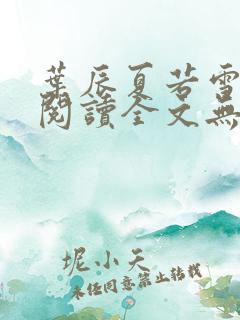 葉辰夏若雪
閱讀全文無
坭小天
未经同意禁止转载